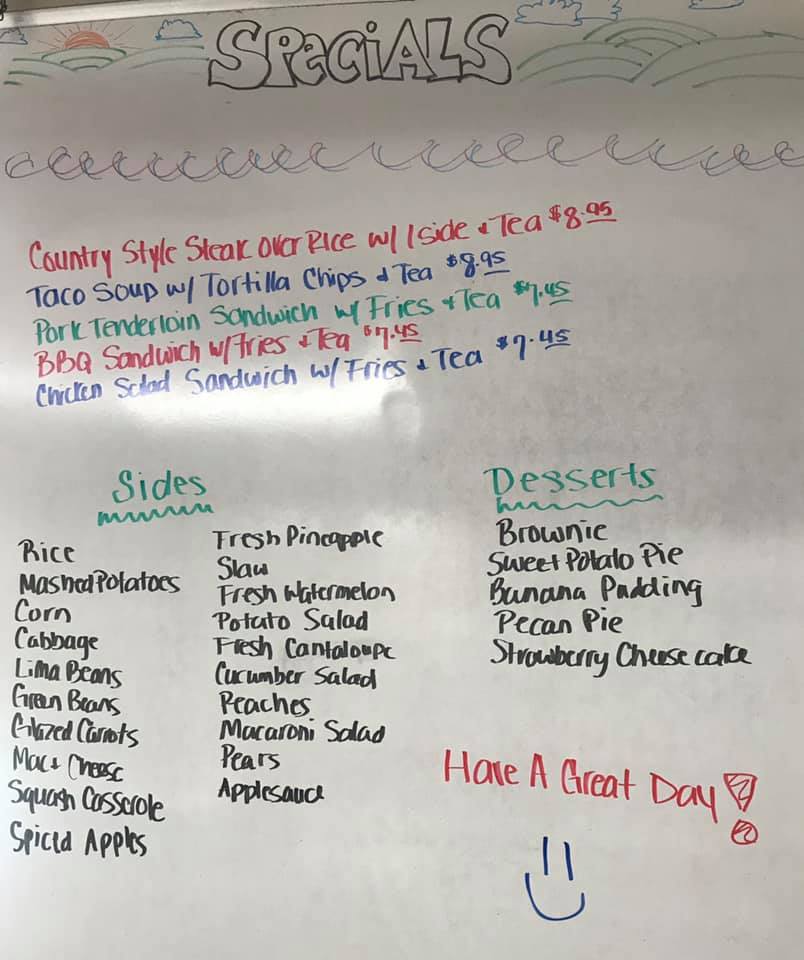 SPeciALS
Country Style Steak over Rice w/ 1 side & Tea $8.95
Taco Soup w/ Tortilla Chips & Tea $8.95
Pork Tenderloin Sandwich w/ Fries & Tea $7.45
BBQ Sandwich w/ Fries & Tea $7.45
Chicken Salad Sandwich w/ Fries & Tea $7.45
Sides
Rice
Mashed Potatoes
Corn
Cabbage
Lima Beans
Green Beans
Glazed Carrots
Mac & Cheese
Squash Casserole
Spiced Apples
Fresh Pineapple
Slaw
Fresh Watermelon
Potato Salad
Fresh Cantaloupe
Cucumber Salad
Peaches
Macaroni Salad
Pears
Applesauce
Desserts
Brownie
Sweet Potato Pie
Banana Pudding
Pecan Pie
Strawberry Cheese cake
Have A Great Day!